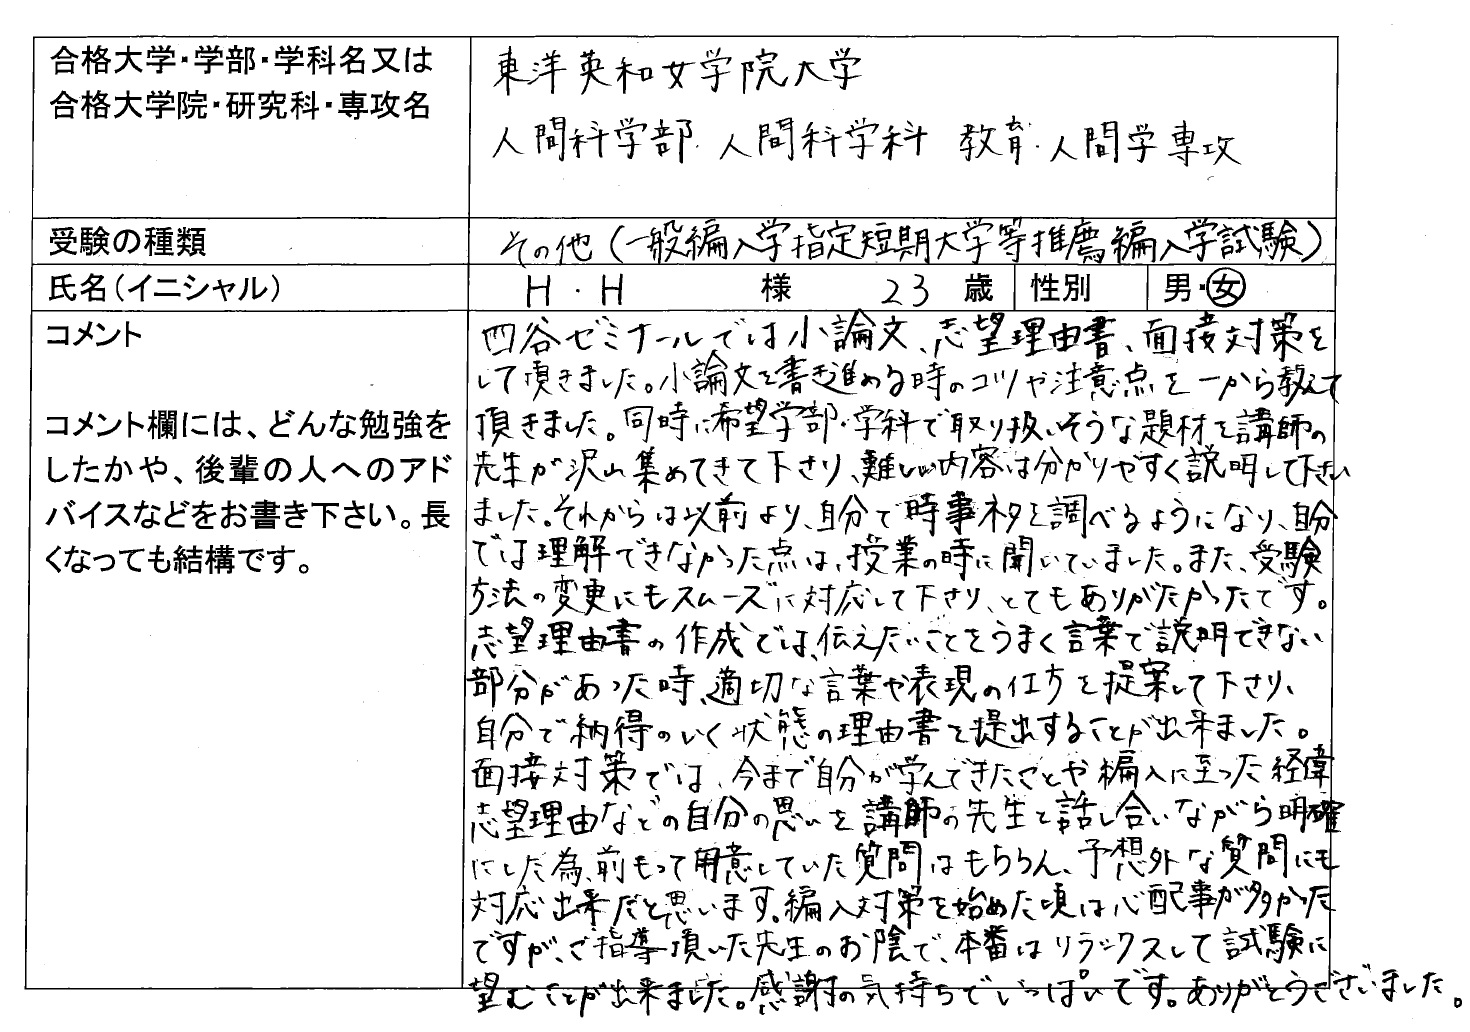 合格大学・学部・学科名又は
合格大学院・研究科・専攻名
東洋英和女学院大学
人間科学部・人間科学科 教育・人間学専攻
受験の種類
その他(一般編入学指定短期大学等推薦編入学試験)
氏名(イニシャル)
H・H 様 23 歳 性別 男・女
コメント
コメント欄には、どんな勉強を
したかや、後輩の人へのアド
バイスなどをお書き下さい。長
くなっても結構です。
四谷ゼミナールでは小論文、志望理由書、面接対策を
して頂きました。小論文を書き進める時のコツや注意点を一から教えて
頂きました。同時に希望学部・学科で取り扱いそうな題材を講師の
先生が沢山集めてきて下さり、難しい内容は分かりやすく説明して下さい
ました。それからは以前より、自分で時事ネタを調べるようになり、自分
では理解できなかった点は、授業の時に聞いていました。また、受験
方法の変更にもスムーズに対応して下さり、とてもありがたかったです。
志望理由書の作成では、伝えたいことをうまく言葉で説明できない
部分があった時、適切な言葉や表現の仕方を提案して下さり、
自分で納得のいく状態の理由書を提出することが出来ました。
面接対策では、今まで自分が学んできたことや編入に至った経緯
志望理由などの自分の思いを講師の先生と話し合いながら明確
にした為、前もって用意していた質問はもちろん、予想外な質問にも
対応出来たと思います。編入対策を始めた頃は心配事が多かった
ですが、ご指導頂いた先生のお陰で、本番はリラックスして試験に
望むことが出来ました。感謝の気持ちでいっぱいです。ありがとうございました。